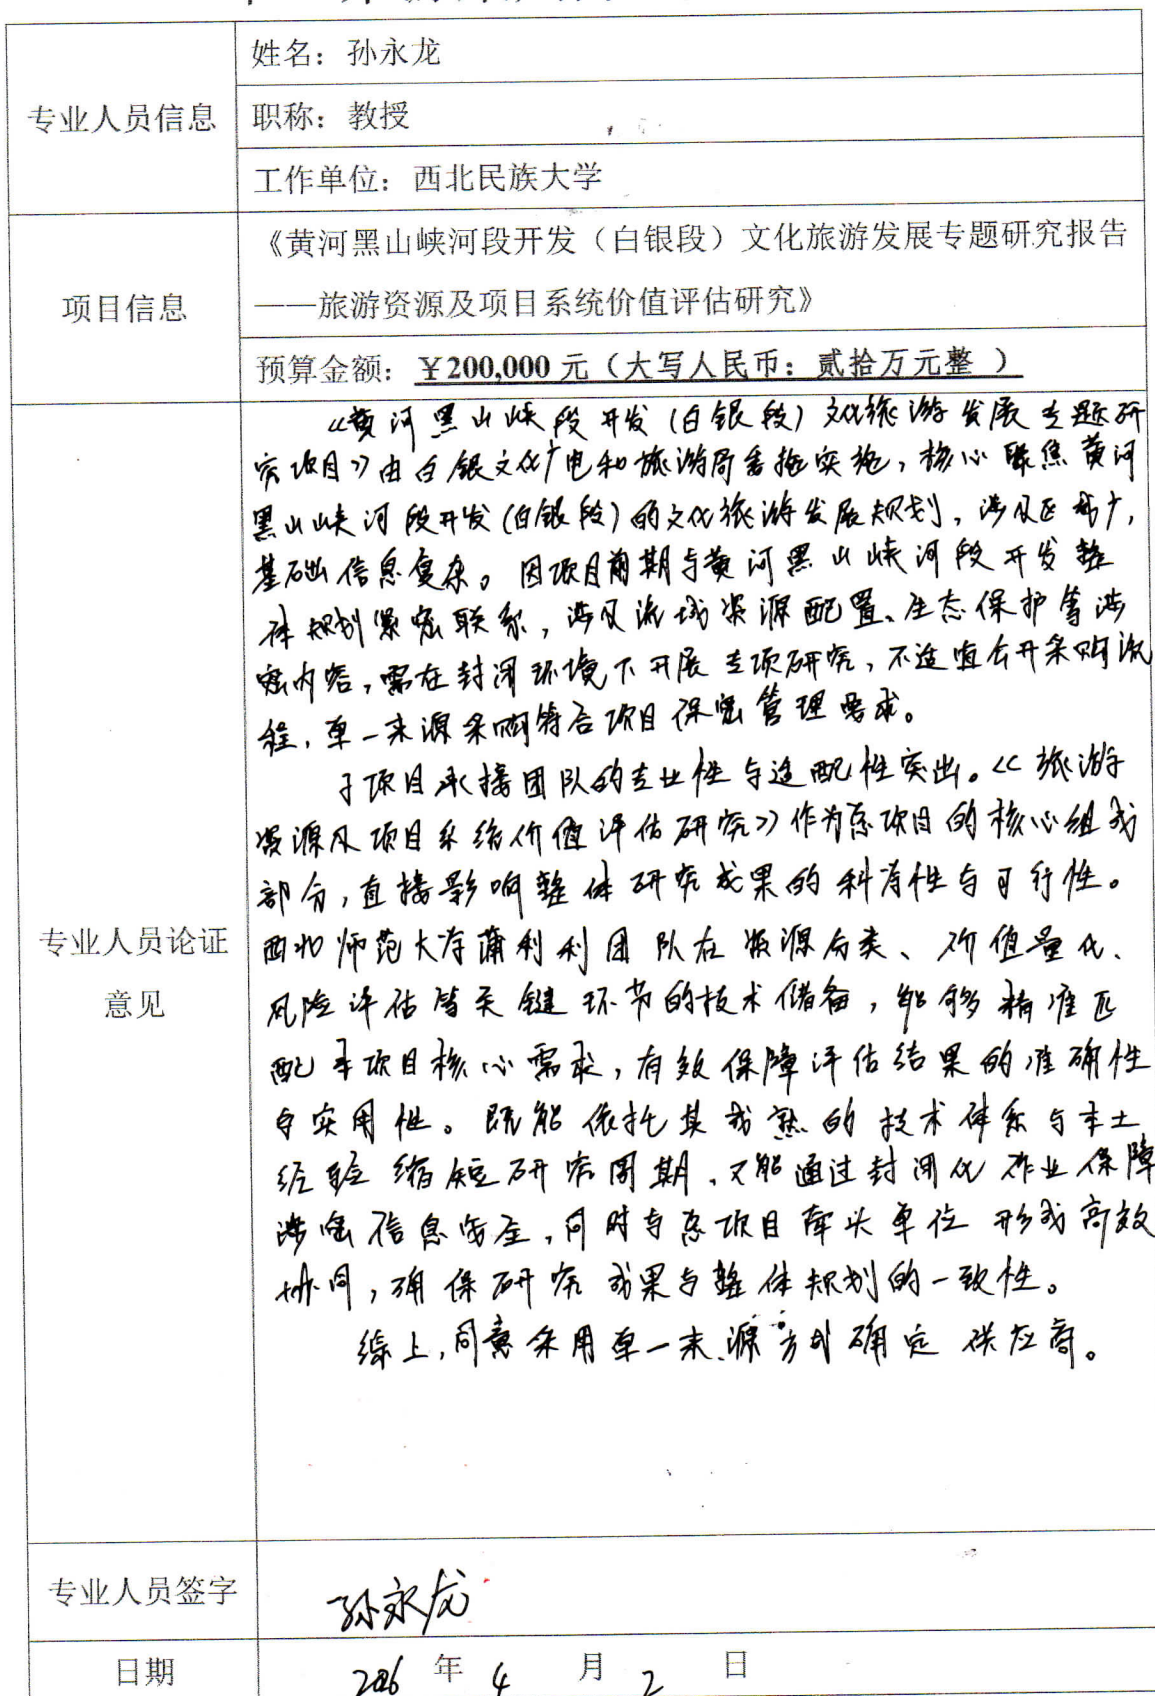 姓名：孙永龙
专业人员信息
职称：教授
工作单位：西北民族大学
项目信息
《黄河黑山峡河段开发（白银段）文化旅游发展专题研究报告
——旅游资源及项目系统价值评估研究》
预算金额：￥200,000 元（大写人民币：贰拾万元整 ）
专业人员论证
意见
《黄河黑山峡段开发(白银段)文化旅游发展专题研
究项目》由白银文化广电和旅游局委拖实施，核心聚焦黄河
黑山峡河段开发(白银段)的文化旅游发展规划，涉及区域广，
基础信息复杂。因项目前期与黄河黑山峡河段开发整
体规划紧密联系，涉及流域资源配置、生态保护等涉
密内容，需在封闭环境下开展专项研究，不适宜公开采购流
程，单一来源采购符合项目保密管理要求。
子项目承接团队的专业性与适配性突出。《旅游
资源及项目系统价值评估研究》作为总项目的核心组成
部分，直接影响整体研究成果的科学性与可行性。
西北师范大学蒲利利团队在资源分类、价值量化、
风险评估等关键环节的技术储备，能够精准匹
配本项目核心需求，有效保障评估结果的准确性
与实用性。既能依托其成熟的技术体系与本土
经验缩短研究周期，又能通过封闭化作业保障
涉密信息安全，同时与总项目牵头单位形成高效
协同，确保研究成果与整体规划的一致性。
综上，同意采用单一来源方式确定供应商。
专业人员签字
孙永龙
日期
2026 年 4 月 2 日